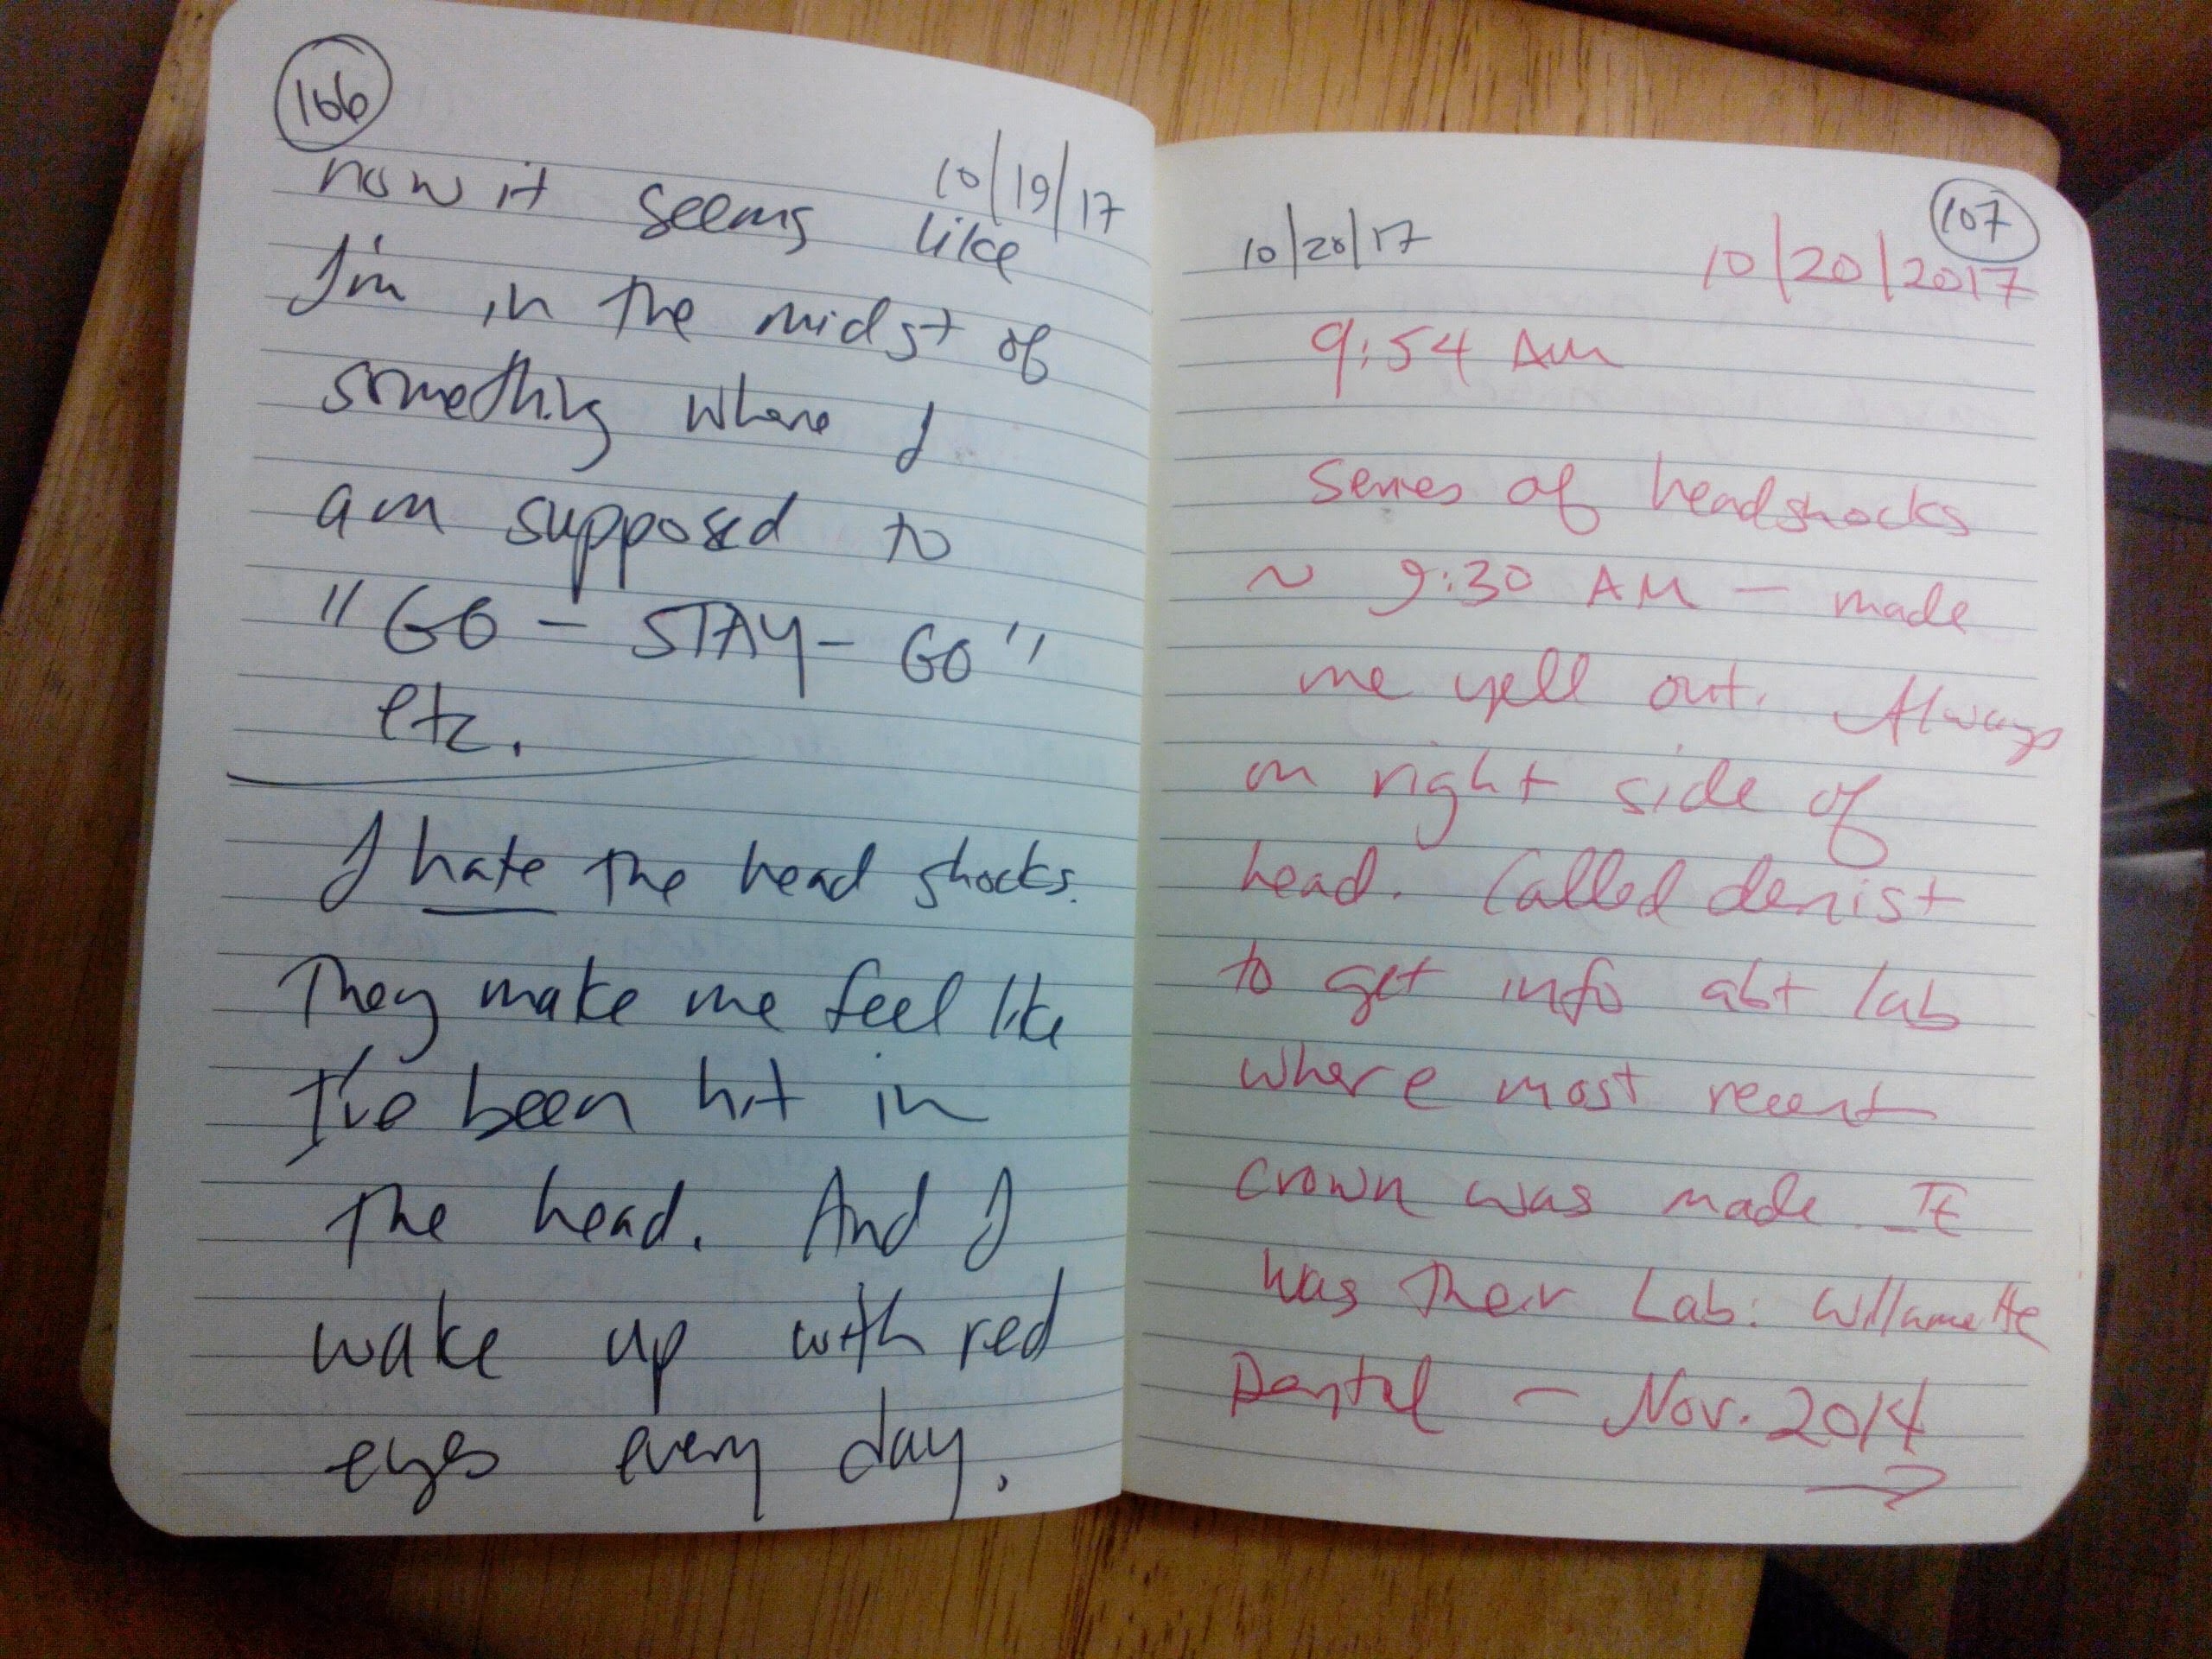 106
10/19/17
now it seems like
I'm in the midst of
something where I
am supposed to
"GO - STAY - GO"
etc.
I hate the head shocks.
They make me feel like
I've been hit in
the head. And I
wake up with red
eyes every day.
107
10/20/17 10/20/2017
9:54 AM
series of headshocks
~ 9:30 AM - made
me yell out. Always
on right side of
head. Called denist
to get info abt lab
where most recent
crown was made. It
was their Lab: Willamette
Dental - Nov. 2014
→